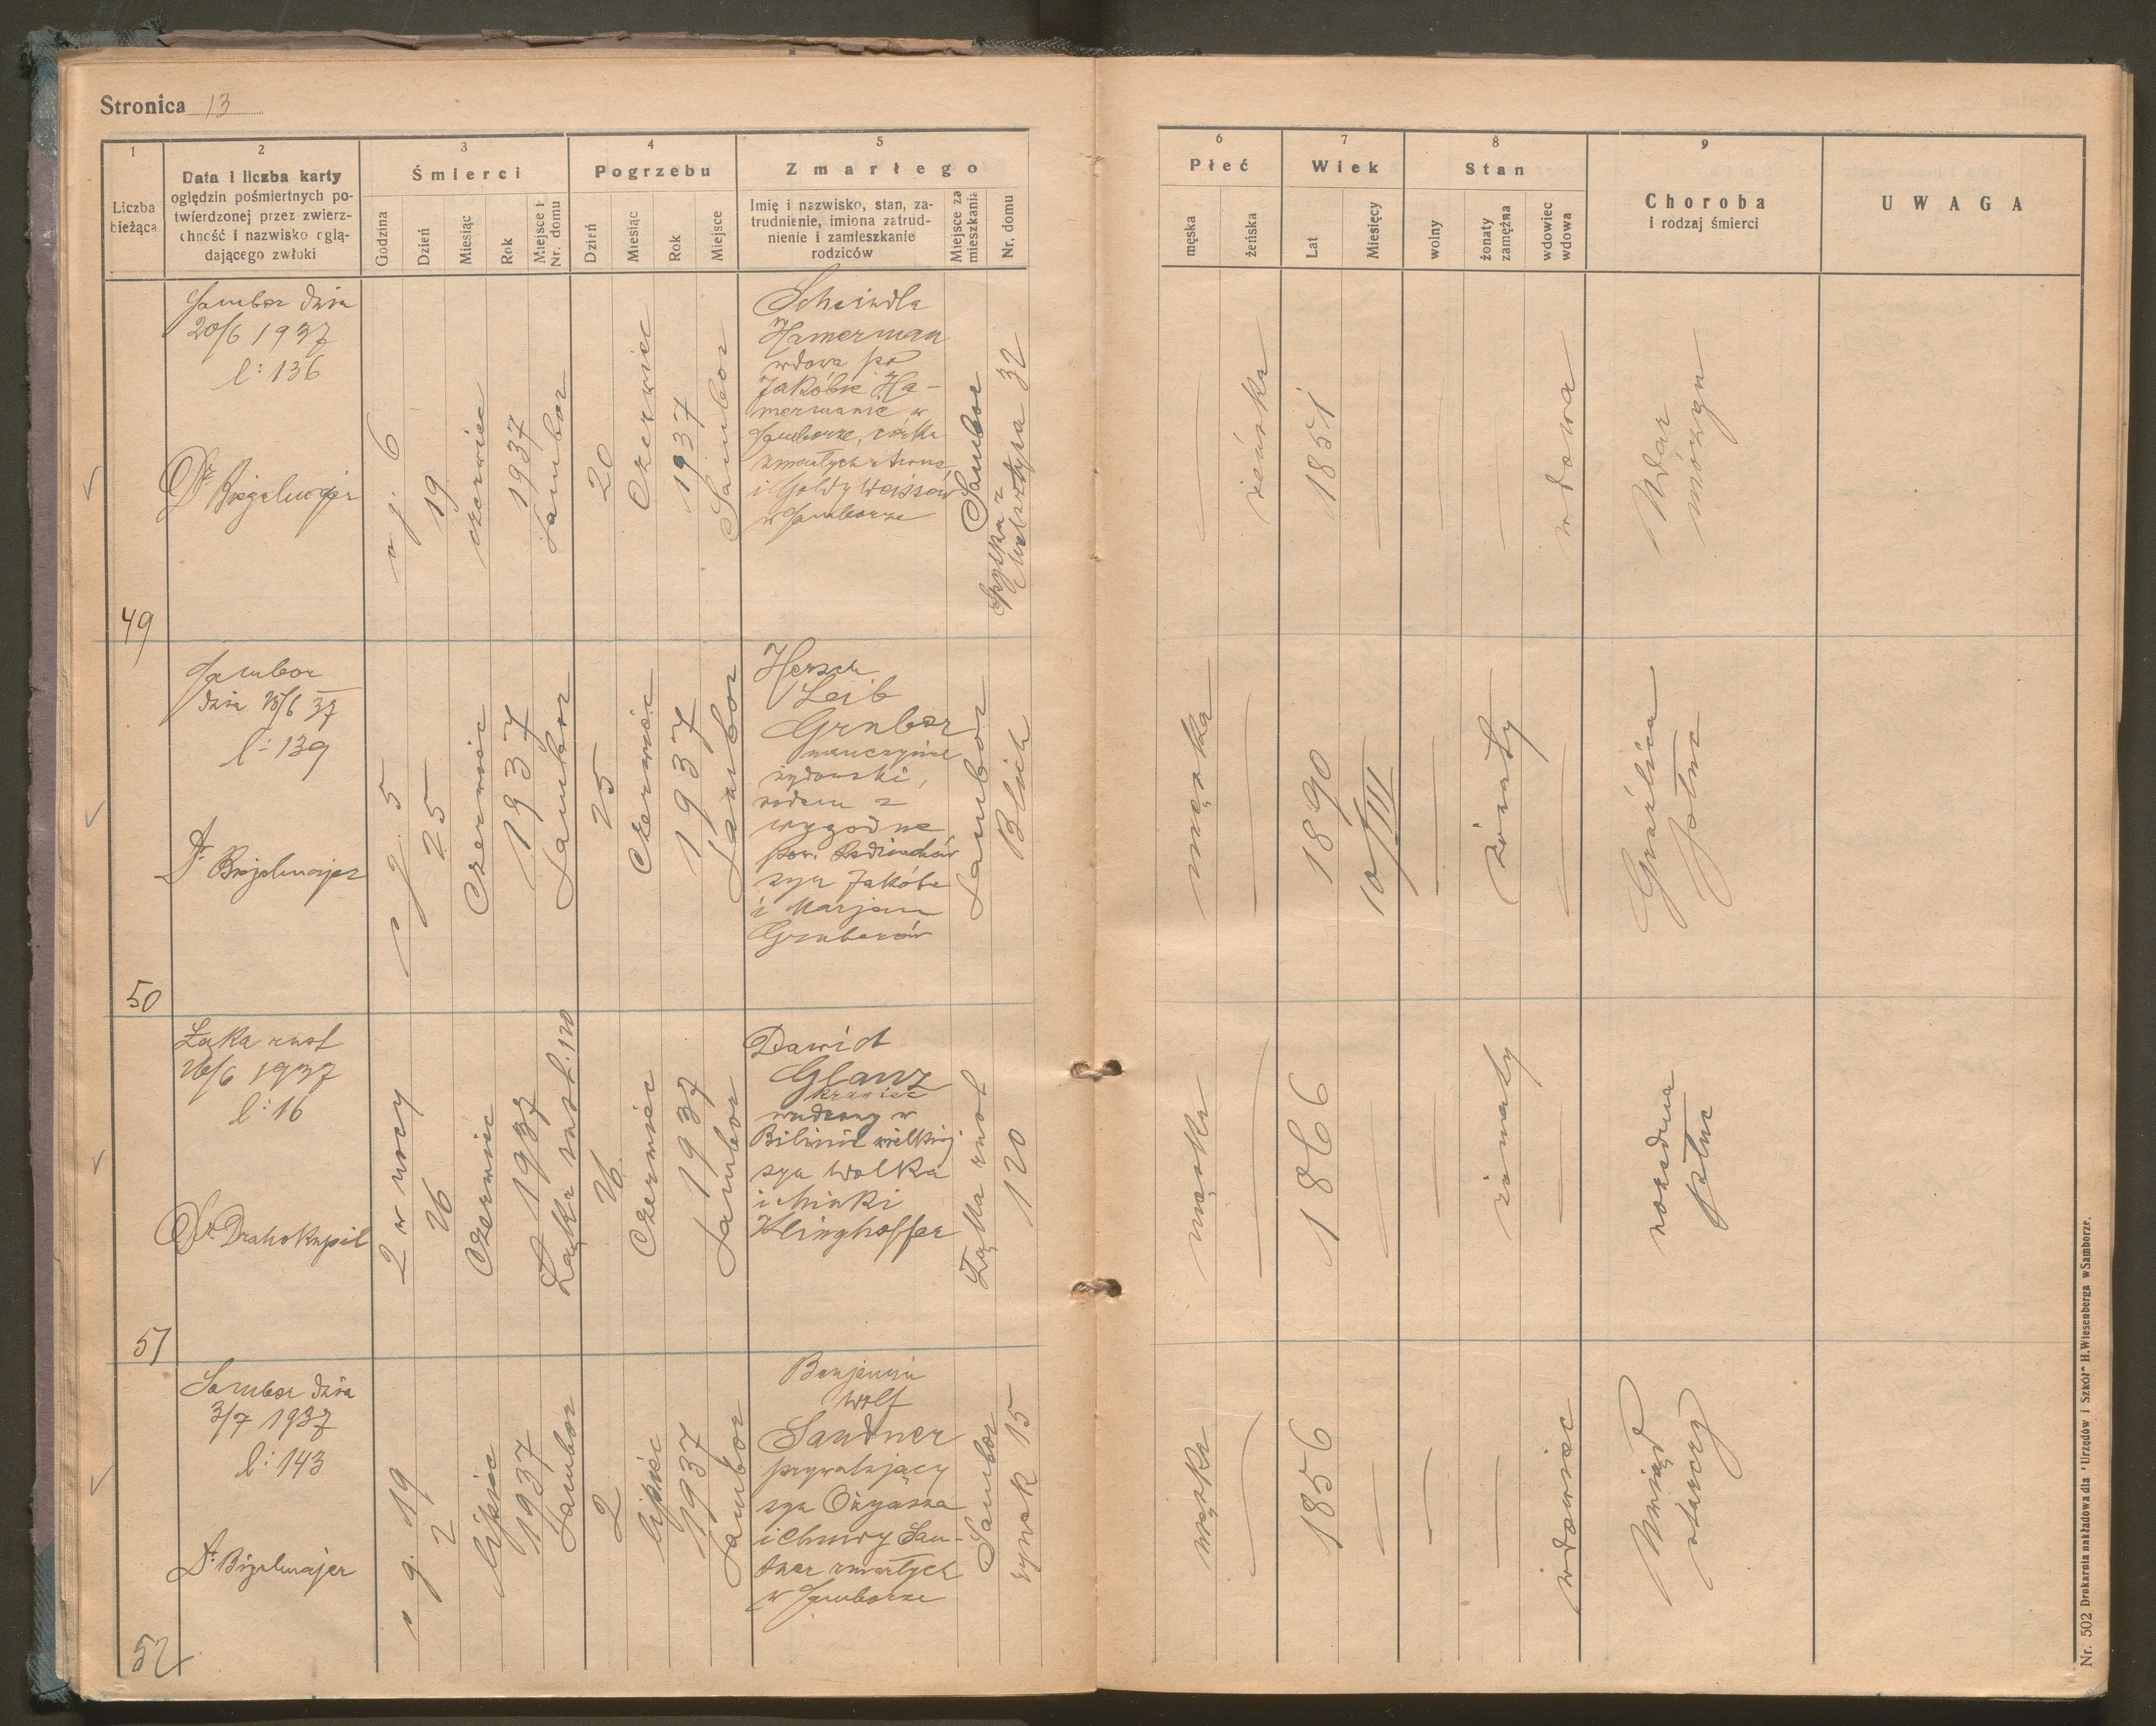 Stronica 13
1
2
3
4
5
Liczba
bieżąca
Data i liczba karty
oględzin pośmiertnych po-
twierdzonej przez zwierz-
chność i nazwisko oglą-
dającego zwłoki
Śmierci
Godzina
Dzień
Miesiąc
Rok
Miejsce i
Nr. domu
Pogrzebu
Dzień
Miesiąc
Rok
Miejsce
Zmarłego
Imię i nazwisko, stan, za-
trudnienie, imiona zatrud-
nienie i zamieszkanie
rodziców
Miejsce za
mieszkania
Nr. domu
6
7
8
9
Płeć
męska
żeńska
Wiek
Lat
Miesięcy
Stan
wolny
żonaty
zamężna
wdowiec
wdowa
Choroba
i rodzaj śmierci
UWAGA
49
Sambor dnia
20/6 1937
l: 136
Dr
o g. 6
19
czerwiec
1937
Sambor
20
Czerwiec
1937
Sambor
Scheindla
Hamerman
wdowa po
Jakóbie Ha-
mermanie w
Samborze, córka
zmarłych
i Goldy Weissów
w Samborze
Sambor
32
żeńska
1851
wdowa
Udar
mózgu
50
Sambor
dnia 25/6 37
l: 139
Dr
o g. 5
25
Czerwiec
1937
Sambor
25
Czerwiec
1937
Sambor
Hersch
Leib
Gruber
nauczyciel
żydowski,
rodem z
wygodne
pow. Radziechów
syn Jakóba
i Marjem
Gruberów
Sambor
Blich
męska
1890
10/III
żonaty
Gruźlica
płuc
51
Łąka rust
26/6 1937
l: 16
Dr Drahokupil
2 w nocy
26
Czerwiec
1937
Łąka rust. 120
26
Czerwiec
1937
Sambor
Dawid
Glanz
krawiec
urodzony w
Bilinie wielkiej
syn Wolka
i Minki
Klinghoffer
Łąka rust
120
męska
1866
żonaty
rozedma
płuc
52
Sambor dnia
3/7 1937
l: 143
Dr
o g. 19
2
lipiec
1937
Sambor
2
lipiec
1937
Sambor
Benjamin
Wolf
Sandner
prywatyzujący
syn Ozyasza
i Chawy San-
dner zmarłych
w Samborze
Sambor
rynek 15
męska
1856
wdowiec
Uwiąd
starczy
Nr. 502 Drukarnia nakładowa dla "Urzędów i Szkół" H.Wiesenberga wSamborze.